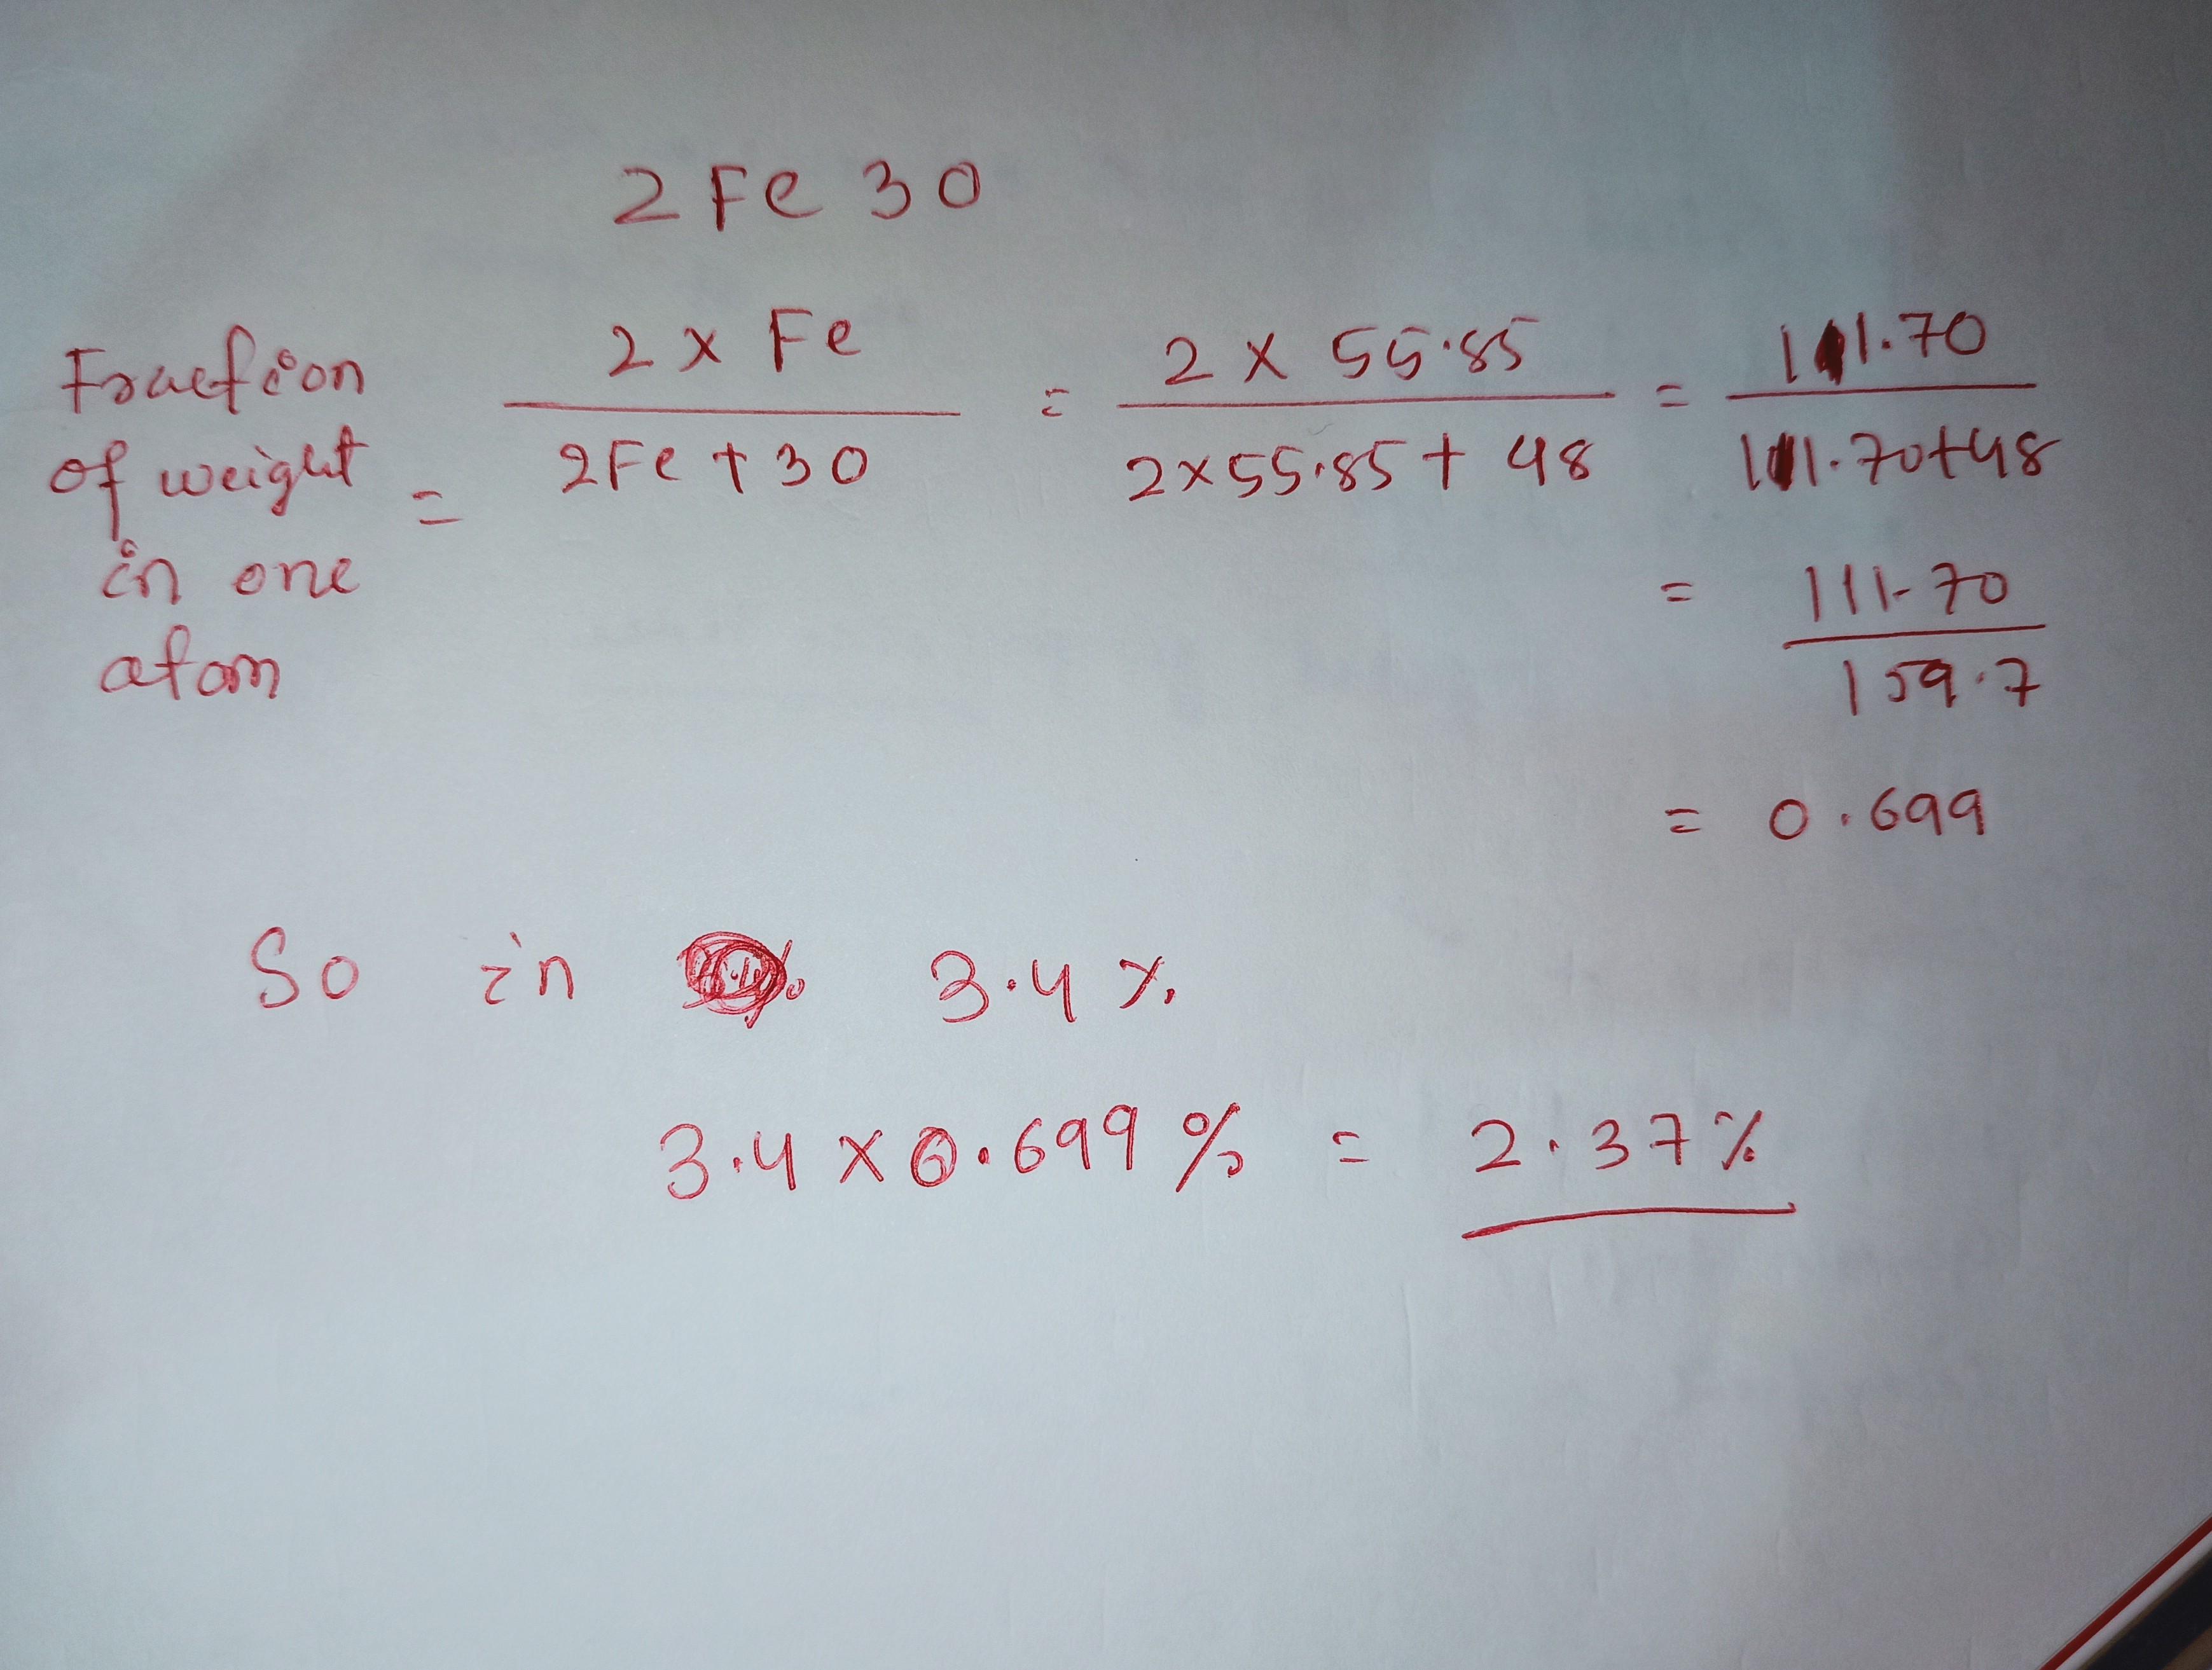 2Fe 3O
Fraction of weight in one atom = 2 x Fe / 2Fe + 3O = 2 x 55.85 / 2x55.85 + 48 = 111.70 / 111.70+48
= 111.70 / 159.7
= 0.699
So in 3.4 %
3.4 x 0.699 % = 2.37%